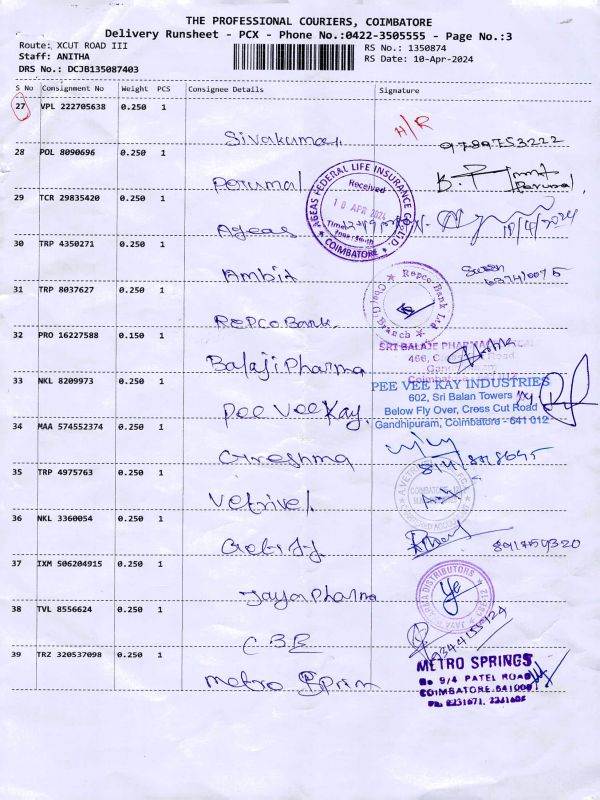 THE PROFESSIONAL COURIERS, COIMBATORE
Delivery Runsheet - PCX - Phone No.:0422-3505555 - Page No.:3
Route: XCUT ROAD III
RS No.: 1350874
Staff: ANITHA
RS Date: 10-Apr-2024
DRS No.: DCJB135087403
S No Consignment No Weight PCS Consignee Details Signature
27 VPL 222705638 0.250 1
Sivakumar H/R 9789753222
28 POL 8090696 0.250 1
Perumal B.
29 TCR 29835420 0.250 1
AGEAS FEDERAL LIFE INSURANCE CO. LTD.
Received
10 APR 2024
COIMBATORE
Ageas 10/4/2024
30 TRP 4350271 0.250 1
Ambit
31 TRP 8037627 0.250 1
Repco Bank Ltd
Branch
Repco Bank.
32 PRO 16227588 0.150 1
SRI BALAJE PHARMA
466, Road
Balaji Pharma
33 NKL 8209973 0.250 1
PEE VEE KAY INDUSTRIES
602, Sri Balan Towers
Below Fly Over, Cross Cut Road
Gandhipuram, Coimbatore - 641 012
Pee Vee Kay.
34 MAA 574552374 0.250 1
Greshma
35 TRP 4975763 0.250 1
Vetrivel
36 NKL 3360054 0.250 1
37 IXM 506204915 0.250 1
DISTRIBUTORS
Jaya Pharma
38 TVL 8556624 0.250 1
CBE 9344155924
39 TRZ 320537098 0.250 1
METRO SPRINGS
No 9/4 PATEL ROAD
COIMBATORE-641009
Metro Sprin